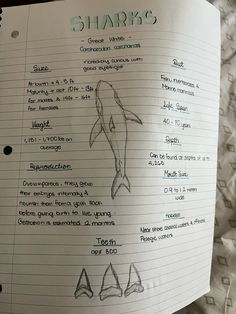 SHARKS
- Great White -
Carcharodon carcharias
Incredibly curious with
good eyesight
Size
At birth = 4-5 ft
for males & 14ft - 16ft
for females
Weight
1,151 - 1,700 lbs
on average
Reproduction
Ovoviparous, they grow
their embryos internally &
nourish them from a yolk sack
before giving birth to live young
Gestation is estimated 12 months
Diet
Fish, invertebrates &
Marine mammals
Life Span
40 - 70 years
Depth
Can be found at depths of up to
Mouth Size
0.9 to 1.2 meter
wide
Habitat
Near shore coastal waters & offshore
Pelagic waters
Teeth
apx 300